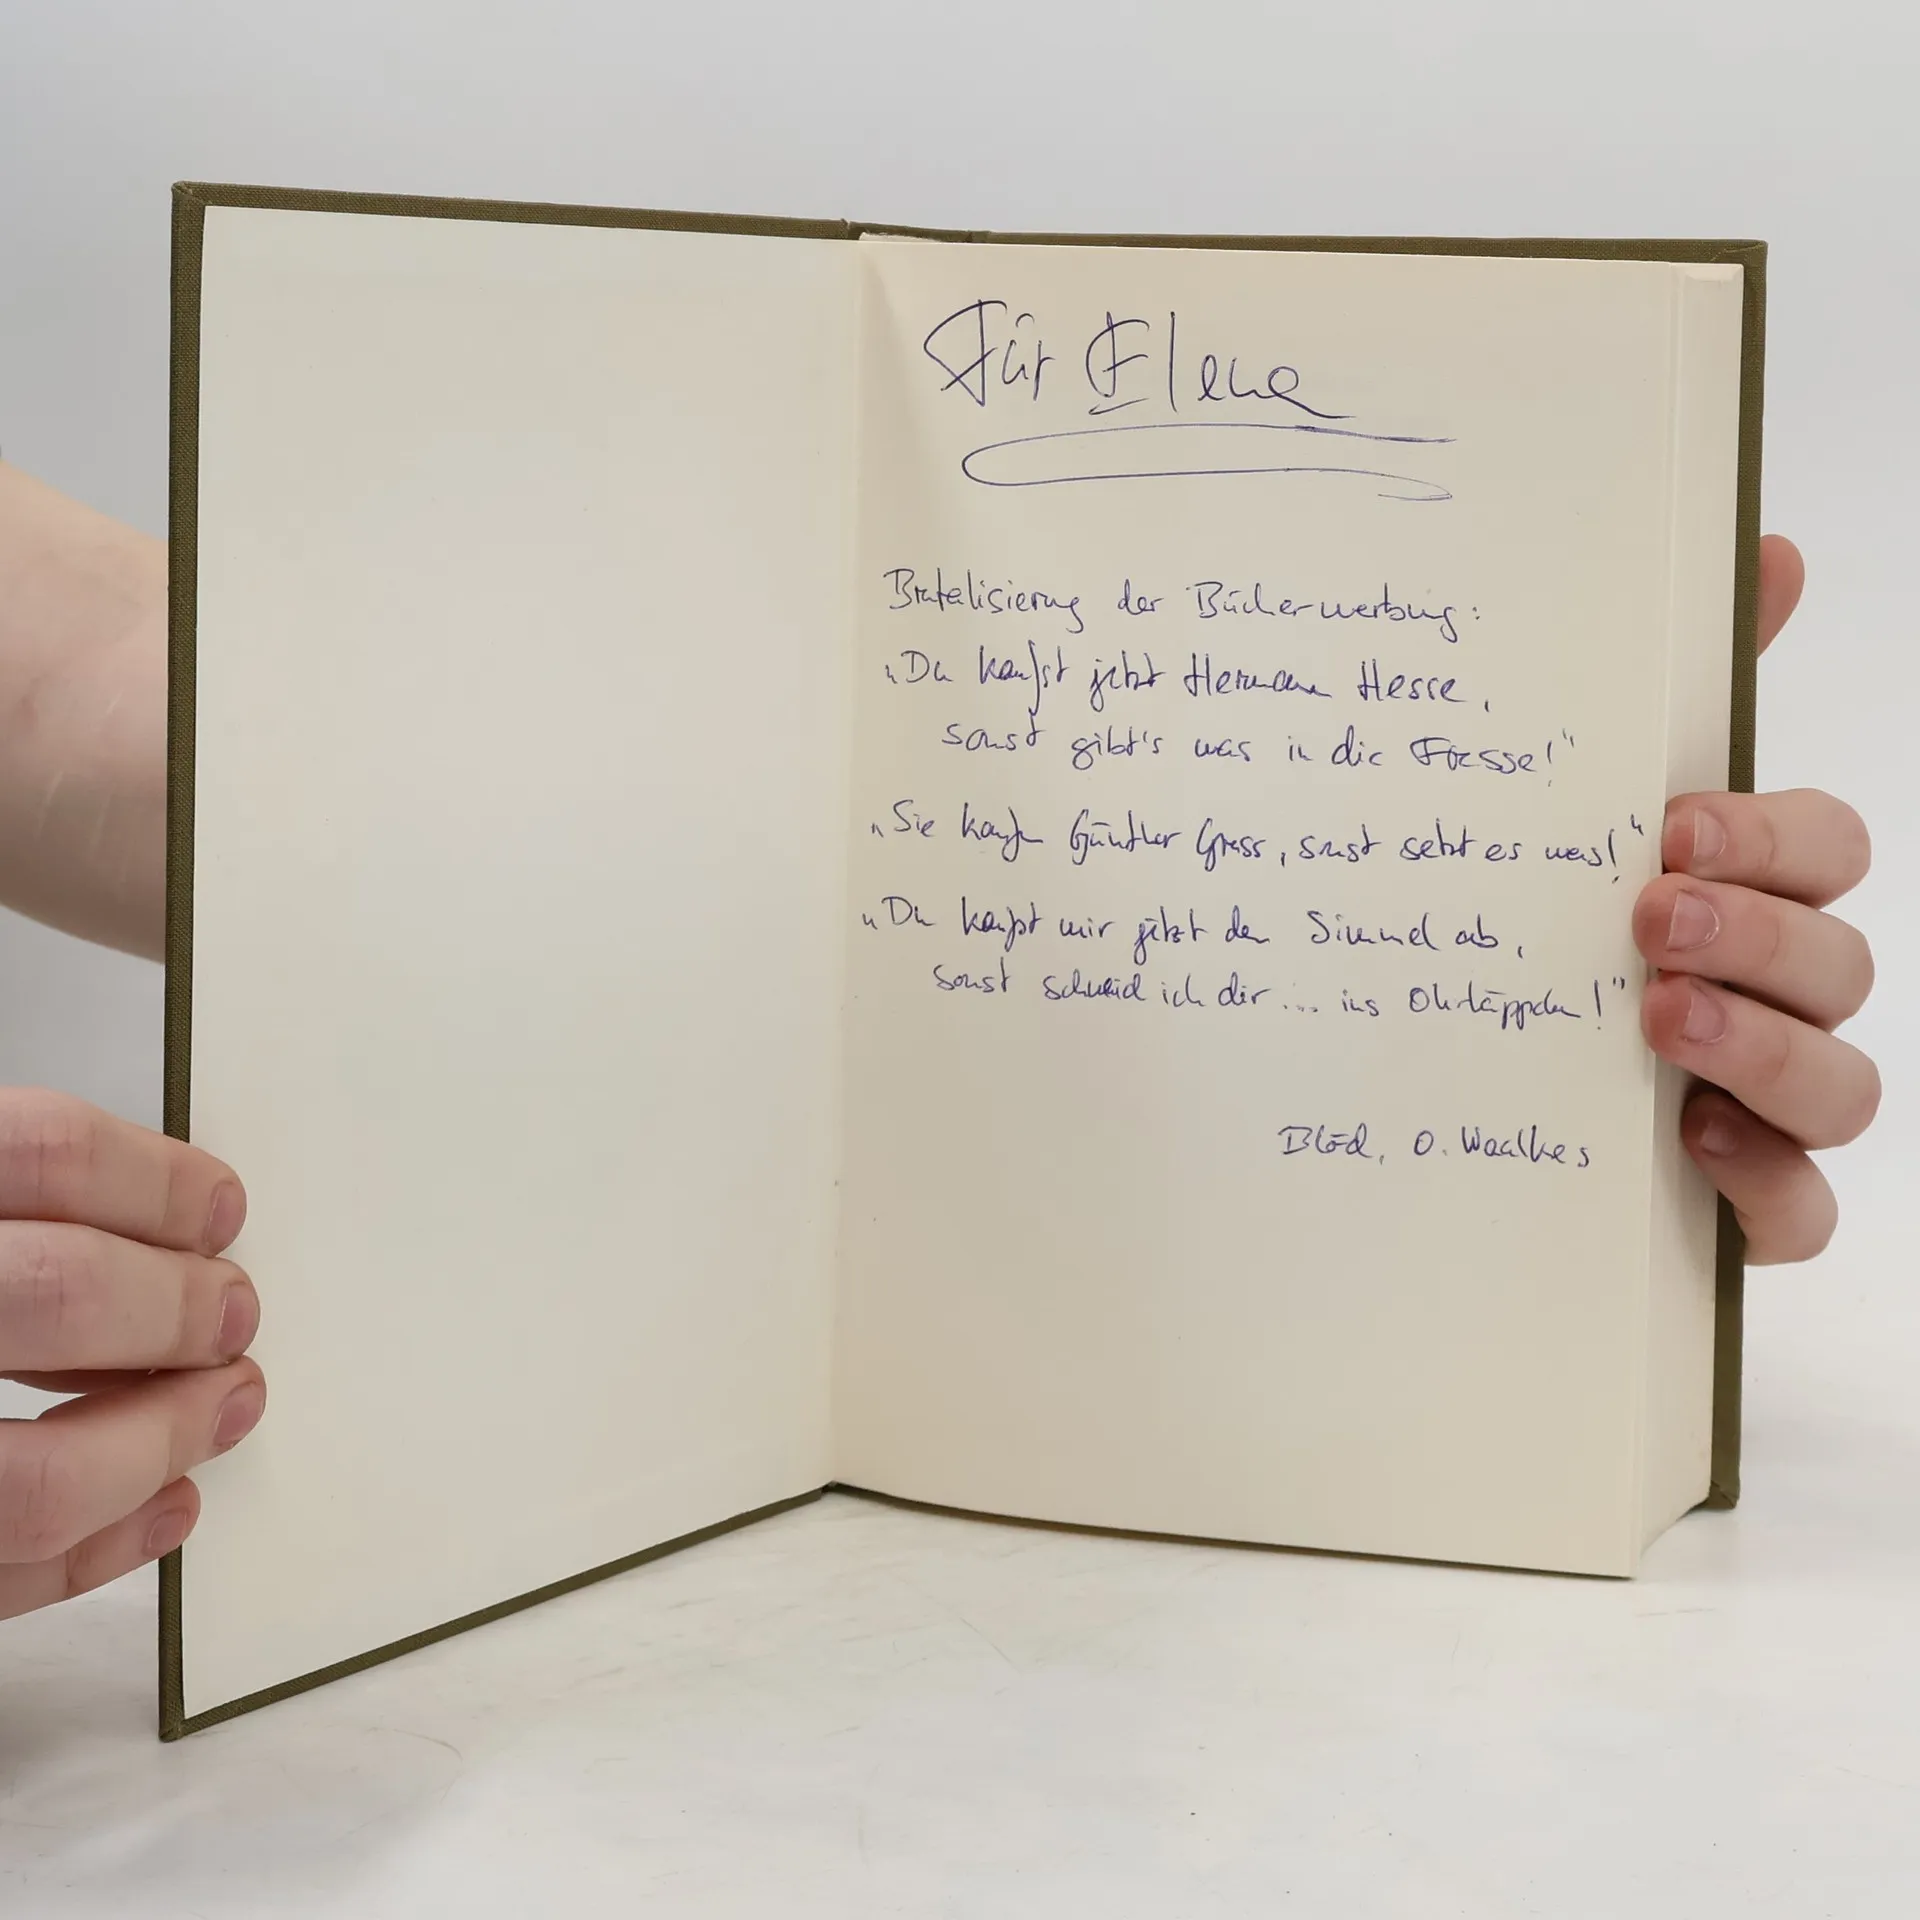 Für Elena
Brutalisierung der Bücherwerbung:
„Du kaufst jetzt Hermann Hesse,
sonst gibt's was in die Fresse!"
„Sie kaufen Günther Grass, sonst setzt es was!"
„Du kaufst mir jetzt den Simmel ab,
sonst schneid ich dir ... ins Ohrläppchen!"
Blöd, O. Waalkes